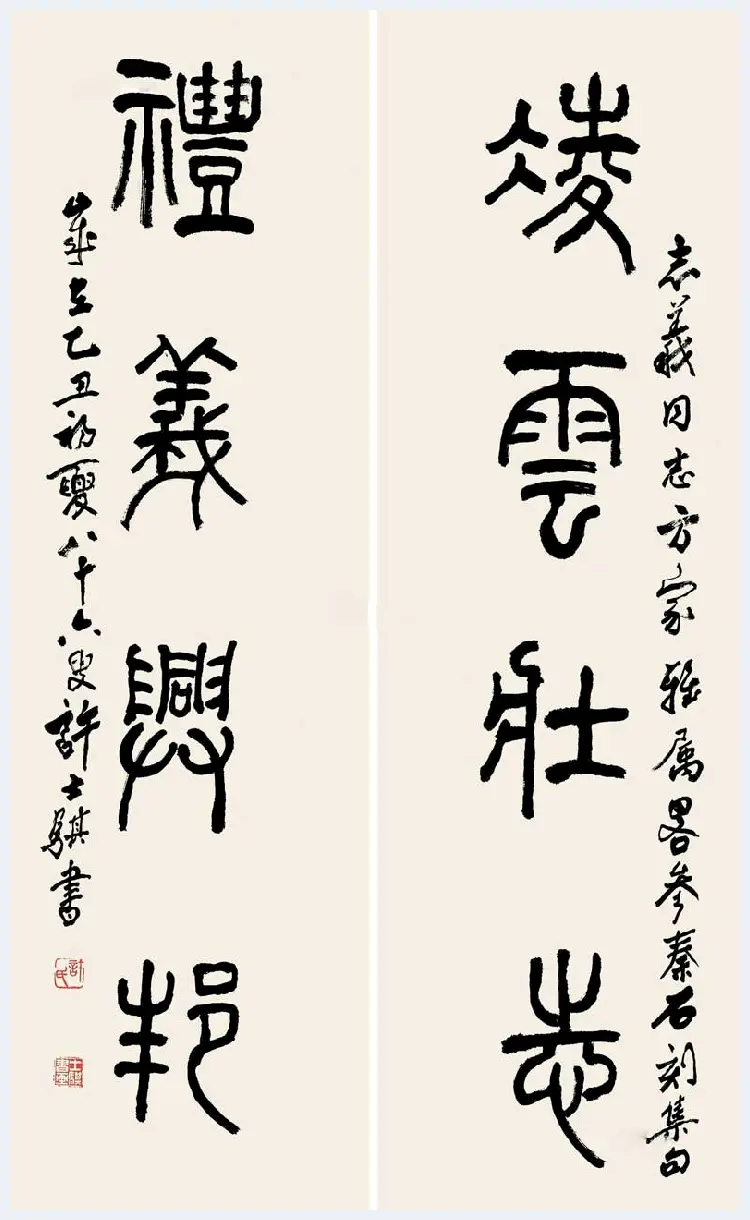 志義同志方家雅属畧参秦石刻集句
凌雲壯志
禮義興邦
歲在乙丑初夏八十六叟許士騏書
許氏
士騏書畫